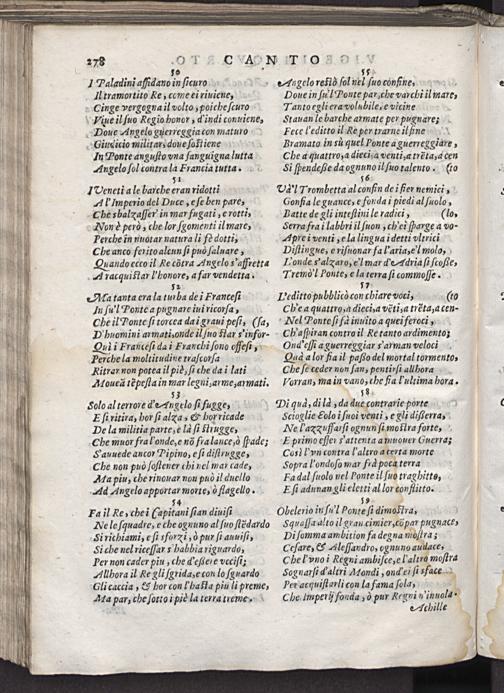 278 CANTO
50
I Paladini assidano in sicuro
Il tramortito Re, come ei riuiene,
Cinge vergogna il volto, poiche scuro
Viue il suo Regio honor, d'indi conuiene,
Doue Angelo guerreggia con maturo
Giudicio militar, doue sostiene
In Ponte angusto vna sanguigna lutta
Angelo sol contra la Francia tutta.
51
I Veneti a le barche eran ridotti
A l'Imperio del Duce, e se ben pare,
Che sbalzasser' in mar fugati, e rotti,
Non è però, che lor sgomenti il mare,
Perche in nuotar natura li fè dotti,
Che anco ferito alcun si può saluare,
Quando ecco il Re côtra Angelo s'affretta
A racquistar l'honore, a far vendetta.
52
Ma tanta era la turba de i Francesi
In su'l Ponte a pugnare iui ricorsa,
Che il Ponte si torcea dai graui pesi, (sa,
D'huomini armati, onde il suo star s'infor-
Quì i Francesi da i Franchi sono offesi,
Perche la moltitudine trascorsa
Ritrar non potea il piè, si che da i lati
Mouea têpesta in mar legni, arme, armati.
53
Solo al terrore d'Angelo si fugge,
E si ritira, hor si alza, & hor ricade
De la militia parte, e là si strugge,
Che muor fra l'onde, e nò fra lance, ò spade;
S'auuede ancor Pipino, e si distrugge,
Che non può sostener chi nel mar cade,
Ma piu, che rinouar non può il duello
Ad Angelo apportar morte, ò flagello.
54
Fa il Re, che i Capitani sian diuisi
Ne le squadre, e che ognuno al suo stêdardo
Si richiami, e si sforzi, ò pur si auuisi,
Si che nel ricessar s'habbia riguardo,
Per non cader piu, che d'essere vccisi;
Allhora il Re gli sgrida, e con lo sguardo
Gli caccia, & hor con l'hasta piu li preme,
Ma par, che sotto i piè la terra treme.
55
Angelo restò sol nel suo confine,
Doue in su'l Ponte par, che varchi il mare,
Tanto egli era volubile, e vicine
Stauan le barche armate per pugnare;
Fece l'editto il Re per trarne il fine
Bramato in sù quel Ponte à guerreggiare,
Che a quattro, a dieci, a venti, a trêta, a cen
Si spendesse da ognuno il suo talento. (to
56
Và'l Trombetta al confin de i fier nemici,
Gonfia le guance, e fonda i piedi al suolo,
Batte de gli intestini le radici, (lo,
Serra fra i labbri il suon, ch'ei sparge a vo-
Apre i venti, e la lingua i detti vltrici
Distingue, e risuonar fa l'aria, e'l molo,
L'onde s'alzaro, e'l mar d'Adria si scosse,
Tremò'l Ponte, e la terra si commosse.
57
L'editto pubblicò con chiare voci, (to
Ch'e a quattro, a dieci, a vêti, a trêta, a cen-
Nel Ponte si fà inuito a quei feroci,
Ch'aspiran contro il Re tanto ardimento;
Ond'essi a guerreggiar s'arman veloci
Quà a lor fia il passo del mortal tormento,
Che se ceder non san, pentirsi allhora
Vorran, ma in vano, che fia l'ultima hora.
58
Di quà, di là, da due contrarie porte
Scioglie Eolo i suoi venti, e gli disserra,
Ne l'azzuffarsi ognun si mostra forte,
E primo esser s'attenta a muouer Guerra;
Così l'vn contra l'altro a certa morte
Sopra l'ondoso mar frà poca terra
Fa dal suolo nel Ponte il suo traghitto,
E si adunan gli eletti al lor conflitto.
59
Obelerio in su'l Ponte si dimostra,
Squassa alto il gran cimier, cò par pugnace,
Di somma ambition fa degna mostra;
Cesare, & Alessandro, ognuno audace,
Che l'vno i Regni ambisce, e l'altro mostra
Sognarsi d'altri Mondi, ond'ei si sface
Per acquistarli con la fama sola,
Che Imperij fonda, ò pur Regni n'inuola.
Achille